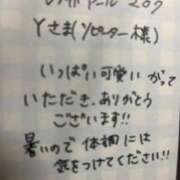 207
Yさま(リピーター様)
いっぱい可愛いがって
いただき、ありがとう
ございます!!
暑いので体調には
気をつけてください!!